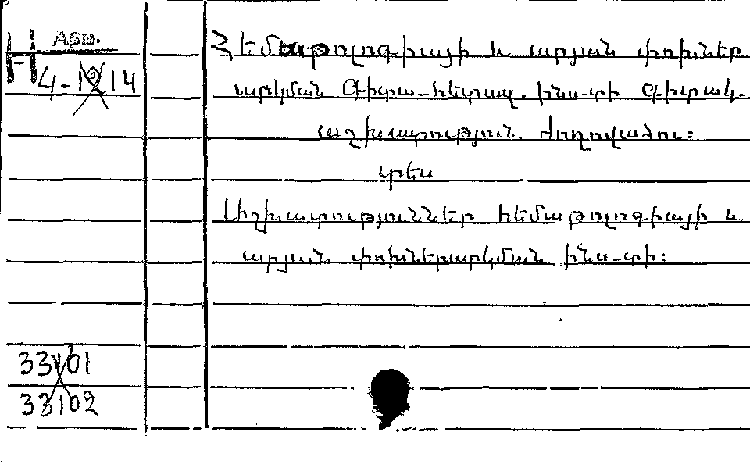 H АБФ.
4-10 14
Հեմատոլոգիայի և արյան փոխներ
արկման Գիտա-հետազ. ինս-տի Գիտակ.
աշխատություն. ժողովածու:
տես
Աշխատություններ հեմատոլոգիայի և
արյան փոխներարկման ինս-տի:
33101
33102